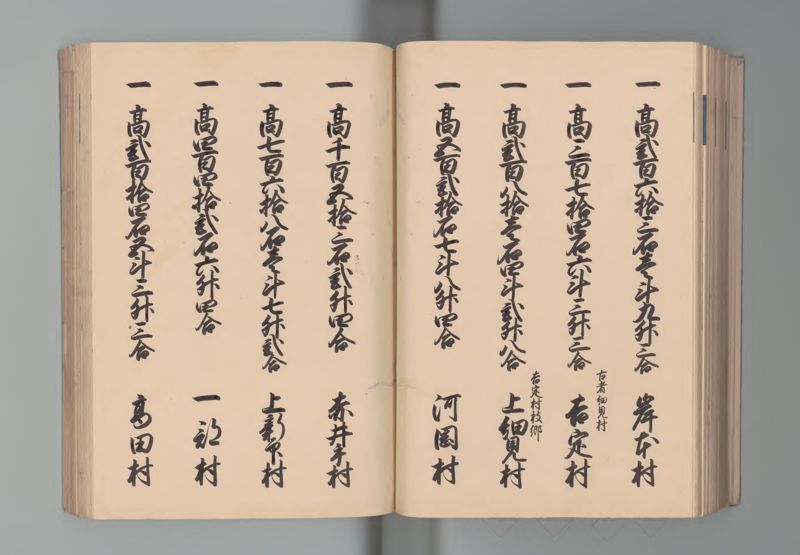 一 高貳百六拾三石壱斗九升三合 岸本村
一 高三百七拾四石六斗三升三合 吉定村
古者細見村
一 高貳百八拾壱石四斗貳升八合 上細見村
吉定村枝郷
一 高五百貳拾石七斗八升四合 河岡村
一 高千百五拾三石貳升四合 赤井手村
一 高七百六拾八石壱斗七升貳合 上新印村
一 高四百四拾貳石六升四合 一部村
一 高貳百拾四石五斗三升三合 高田村